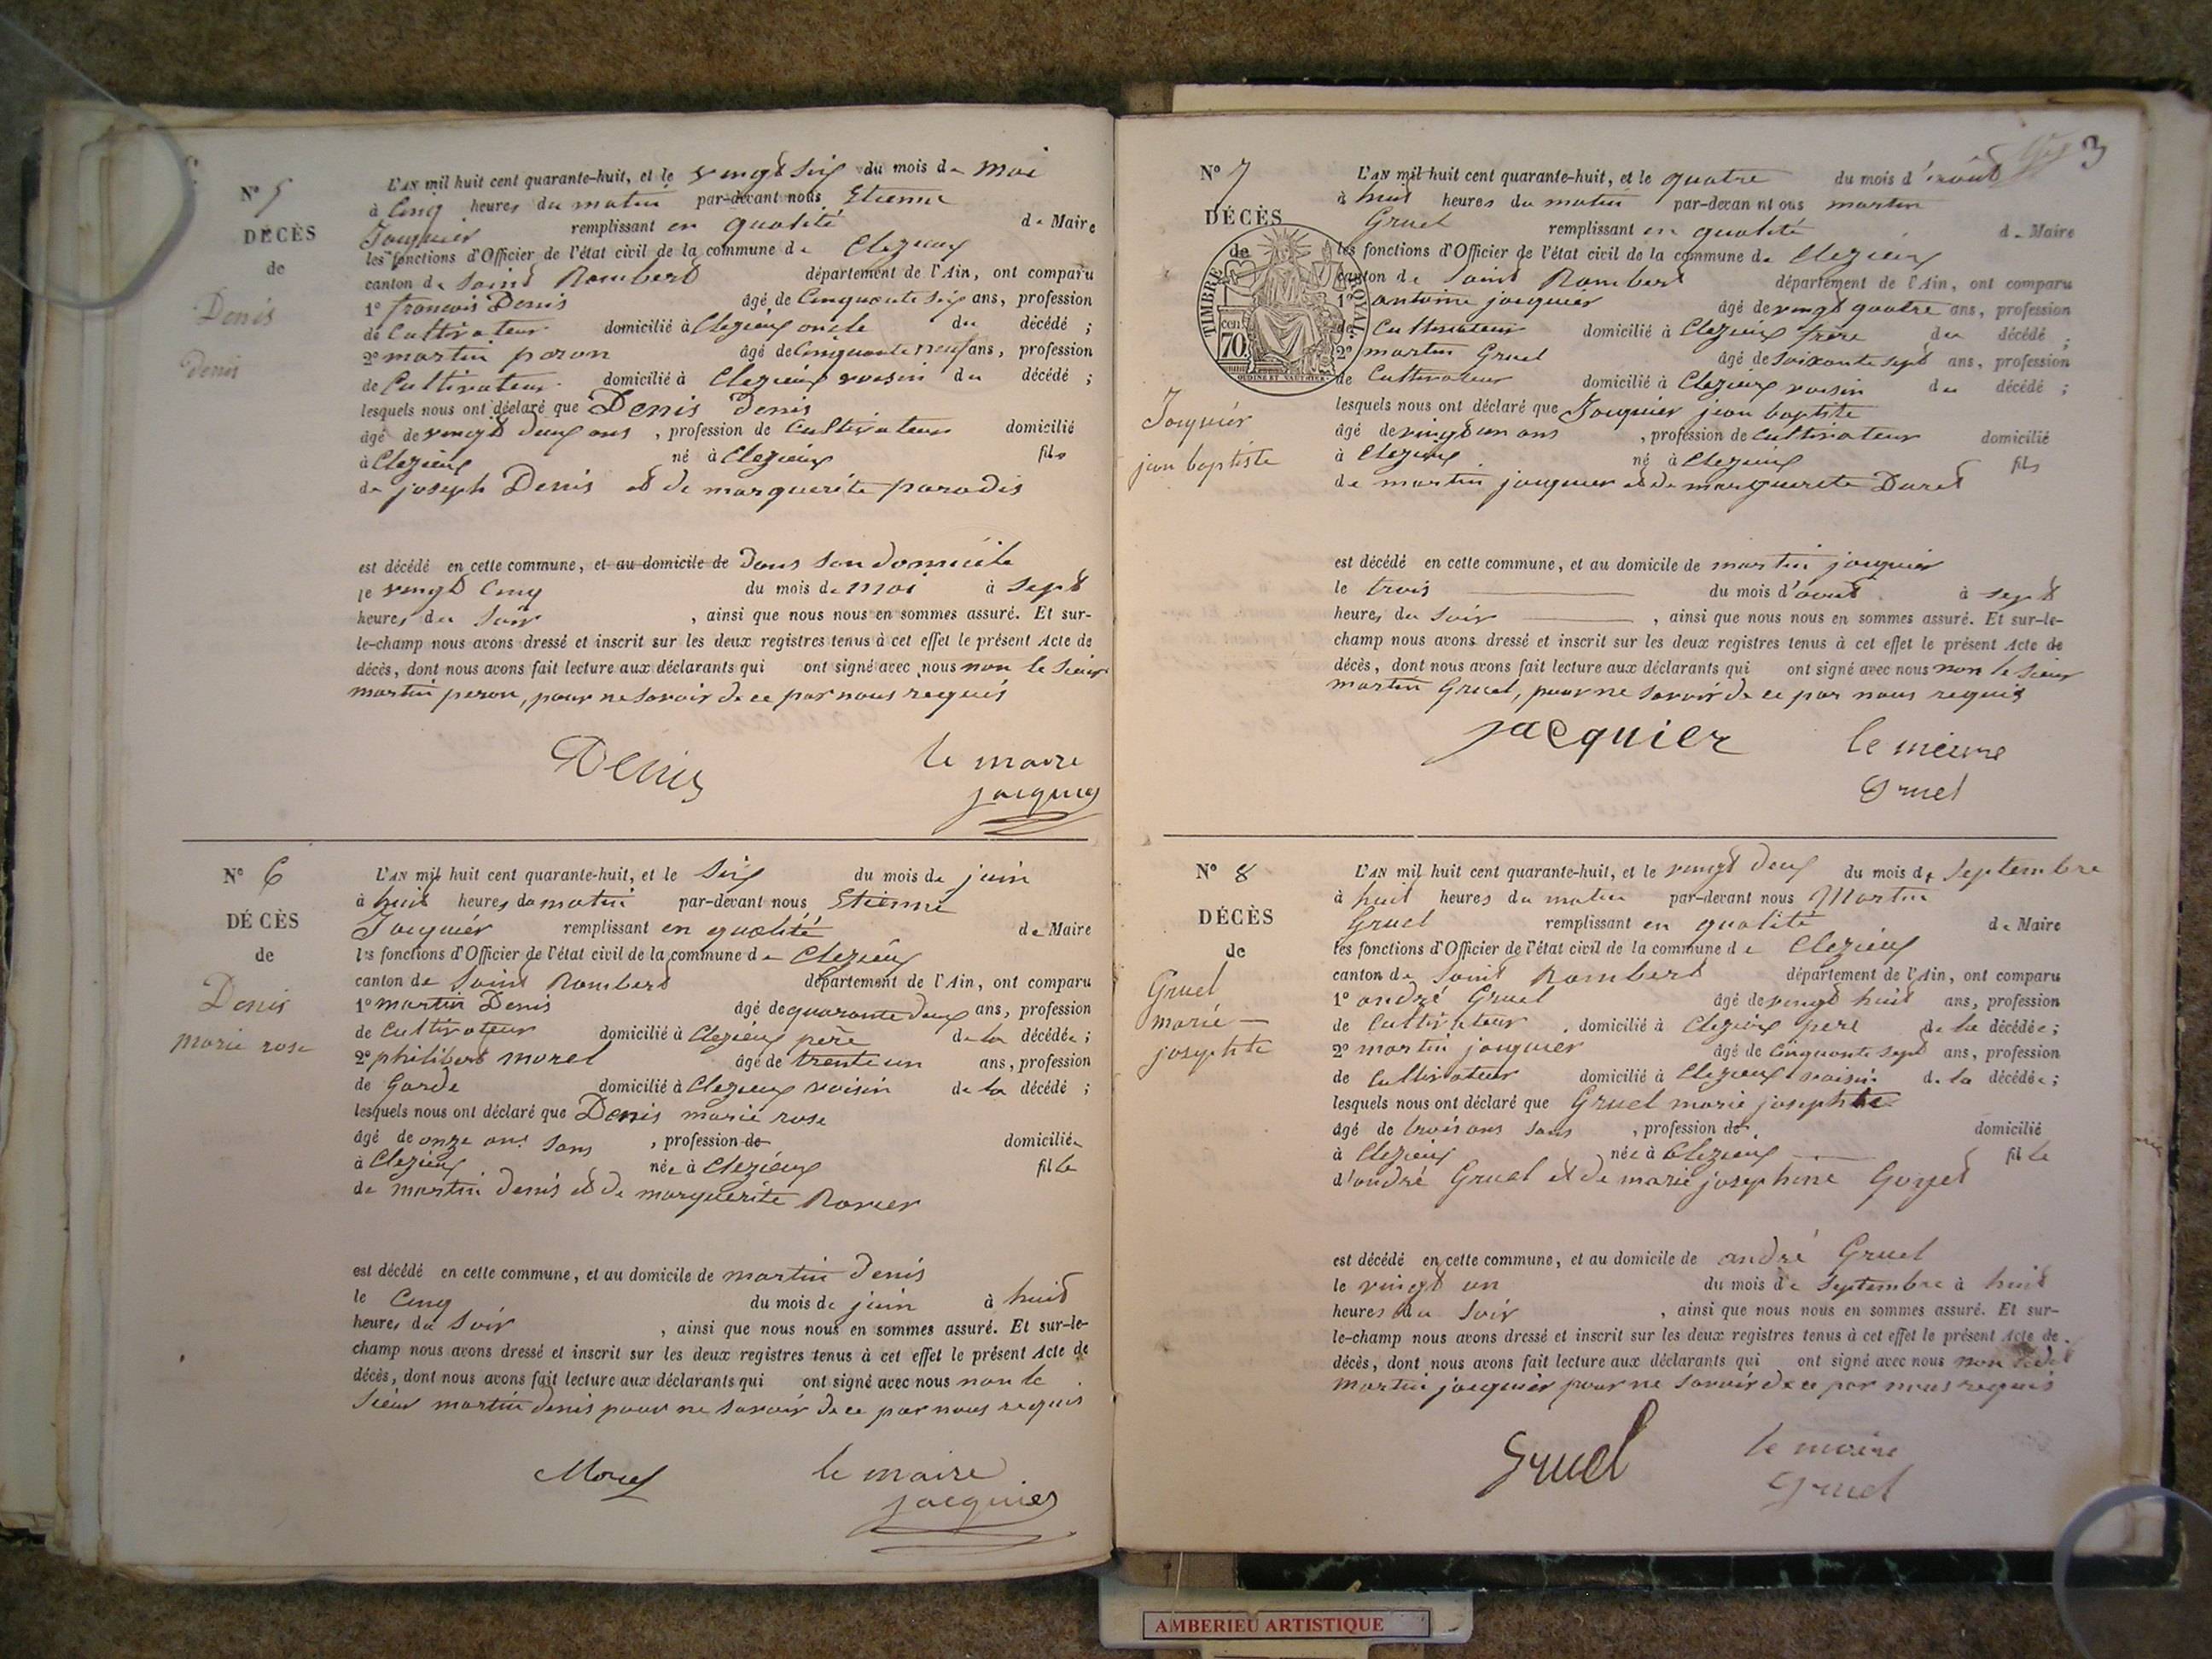 N° 5
DÉCÈS
de
Denis
Denis
L'AN mil huit cent quarante-huit, et le vingt six du mois de mai
à Cinq heures du matin par-devant nous Etienne
Jacquier remplissant en qualité de Maire
les fonctions d'Officier de l'état civil de la commune de Clezieux
canton de Saint Rambert département de l'Ain, ont comparu
1° francois Denis âgé de Cinquante six ans, profession
de Cultivateur domicilié à Clezieux oncle du décédé ;
2° martin peron âgé de Cinquante neuf ans, profession
de Cultivateur domicilié à Clezieux voisin du décédé ;
lesquels nous ont déclaré que Denis Denis
âgé de vingt deux ans , profession de Cultivateur domicilié
à Clezieux né à Clezieux fils
de joseph Denis et de marguerite paradis
est décédé en cette commune, et au domicile de dans son domicile
le vingt Cinq du mois de mai à sept
heures du soir , ainsi que nous nous en sommes assuré. Et sur-
le-champ nous avons dressé et inscrit sur les deux registres tenus à cet effet le présent Acte de
décès, dont nous avons fait lecture aux déclarants qui ont signé avec nous non le sieur
martin peron, pour ne savoir de ce par nous requis
Denis
le maire
jacquier
N° 6
DÉCÈS
de
Denis
marie rose
L'AN mil huit cent quarante-huit, et le six du mois de juin
à huit heures du matin par-devant nous Etienne
Jacquier remplissant en qualité de Maire
les fonctions d'Officier de l'état civil de la commune de Clezieux
canton de Saint Rambert département de l'Ain, ont comparu
1° martin Denis âgé de quarante deux ans, profession
de Cultivateur domicilié à Clezieux père de la décédée ;
2° philibert morel âgé de trente un ans, profession
de Garde domicilié à Clezieux voisin de la décédé ;
lesquels nous ont déclaré que Denis marie rose
âgé de onze ans sans , profession de domiciliée
à Clezieux née à Clezieux fille
de martin denis et de marguerite
est décédé en cette commune, et au domicile de martin denis
le Cinq du mois de juin à huit
heures du soir , ainsi que nous nous en sommes assuré. Et sur-le-
champ nous avons dressé et inscrit sur les deux registres tenus à cet effet le présent Acte de
décès, dont nous avons fait lecture aux déclarants qui ont signé avec nous non le
sieur martin denis pour ne savoir de ce par nous requis
Morel
le maire
jacquier
3
N° 7
DÉCÈS
de
TIMBRE ROYAL
cen. 70
Jacquier
jean baptiste
L'AN mil huit cent quarante-huit, et le quatre du mois d'août
à huit heures du matin par-devan nt ous martin
Gruel remplissant en qualité de Maire
les fonctions d'Officier de l'état civil de la commune de Clezieux
canton de Saint Rambert département de l'Ain, ont comparu
1° antoine jacquier âgé de vingt quatre ans, profession
de Cultivateur domicilié à Clezieux frère du décédé ;
2° martin Gruel âgé de soixante sept ans, profession
de Cultivateur domicilié à Clezieux voisin du décédé ;
lesquels nous ont déclaré que Jacquier jean baptiste
âgé de vingt un ans , profession de cultivateur domicilié
à Clezieux né à Clezieux fils
de martin jacquier et de marguerite Duret
est décédé en cette commune, et au domicile de martin jacquier
le trois du mois d'août à sept
heures du soir , ainsi que nous nous en sommes assuré. Et sur-le-
champ nous avons dressé et inscrit sur les deux registres tenus à cet effet le présent Acte de
décès, dont nous avons fait lecture aux déclarants qui ont signé avec nous non le sieur
martin Gruel, pour ne savoir de ce par nous requis
jacquier
le meire
Gruel
N° 8
DÉCÈS
de
Gruel
marie
josephte
L'AN mil huit cent quarante-huit, et le vingt deux du mois de septembre
à huit heures du matin par-devant nous Martin
Gruel remplissant en qualité de Maire
les fonctions d'Officier de l'état civil de la commune de Clezieux
canton de Saint Rambert département de l'Ain, ont comparu
1° andré Gruel âgé de vingt huit ans, profession
de Cultivateur domicilié à Clezieux pere de la décédée ;
2° martin jacquier âgé de Cinquante sept ans, profession
de Cultivateur domicilié à Clezieux voisin de la décédée ;
lesquels nous ont déclaré que Gruel marie josephte
âgé de trois ans sans , profession de domicilié
à Clezieux née à Clezieux fille
d'andré Gruel et de marie josephine Goyet
est décédé en cette commune, et au domicile de andré Gruel
le vingt un du mois de septembre à huit
heures du soir , ainsi que nous nous en sommes assuré. Et sur-
le-champ nous avons dressé et inscrit sur les deux registres tenus à cet effet le présent Acte de
décès, dont nous avons fait lecture aux déclarants qui ont signé avec nous non
martin jacquier pour ne savoir de ce par nous requis
Gruel
le maire
Gruel
AMBERIEU ARTISTIQUE